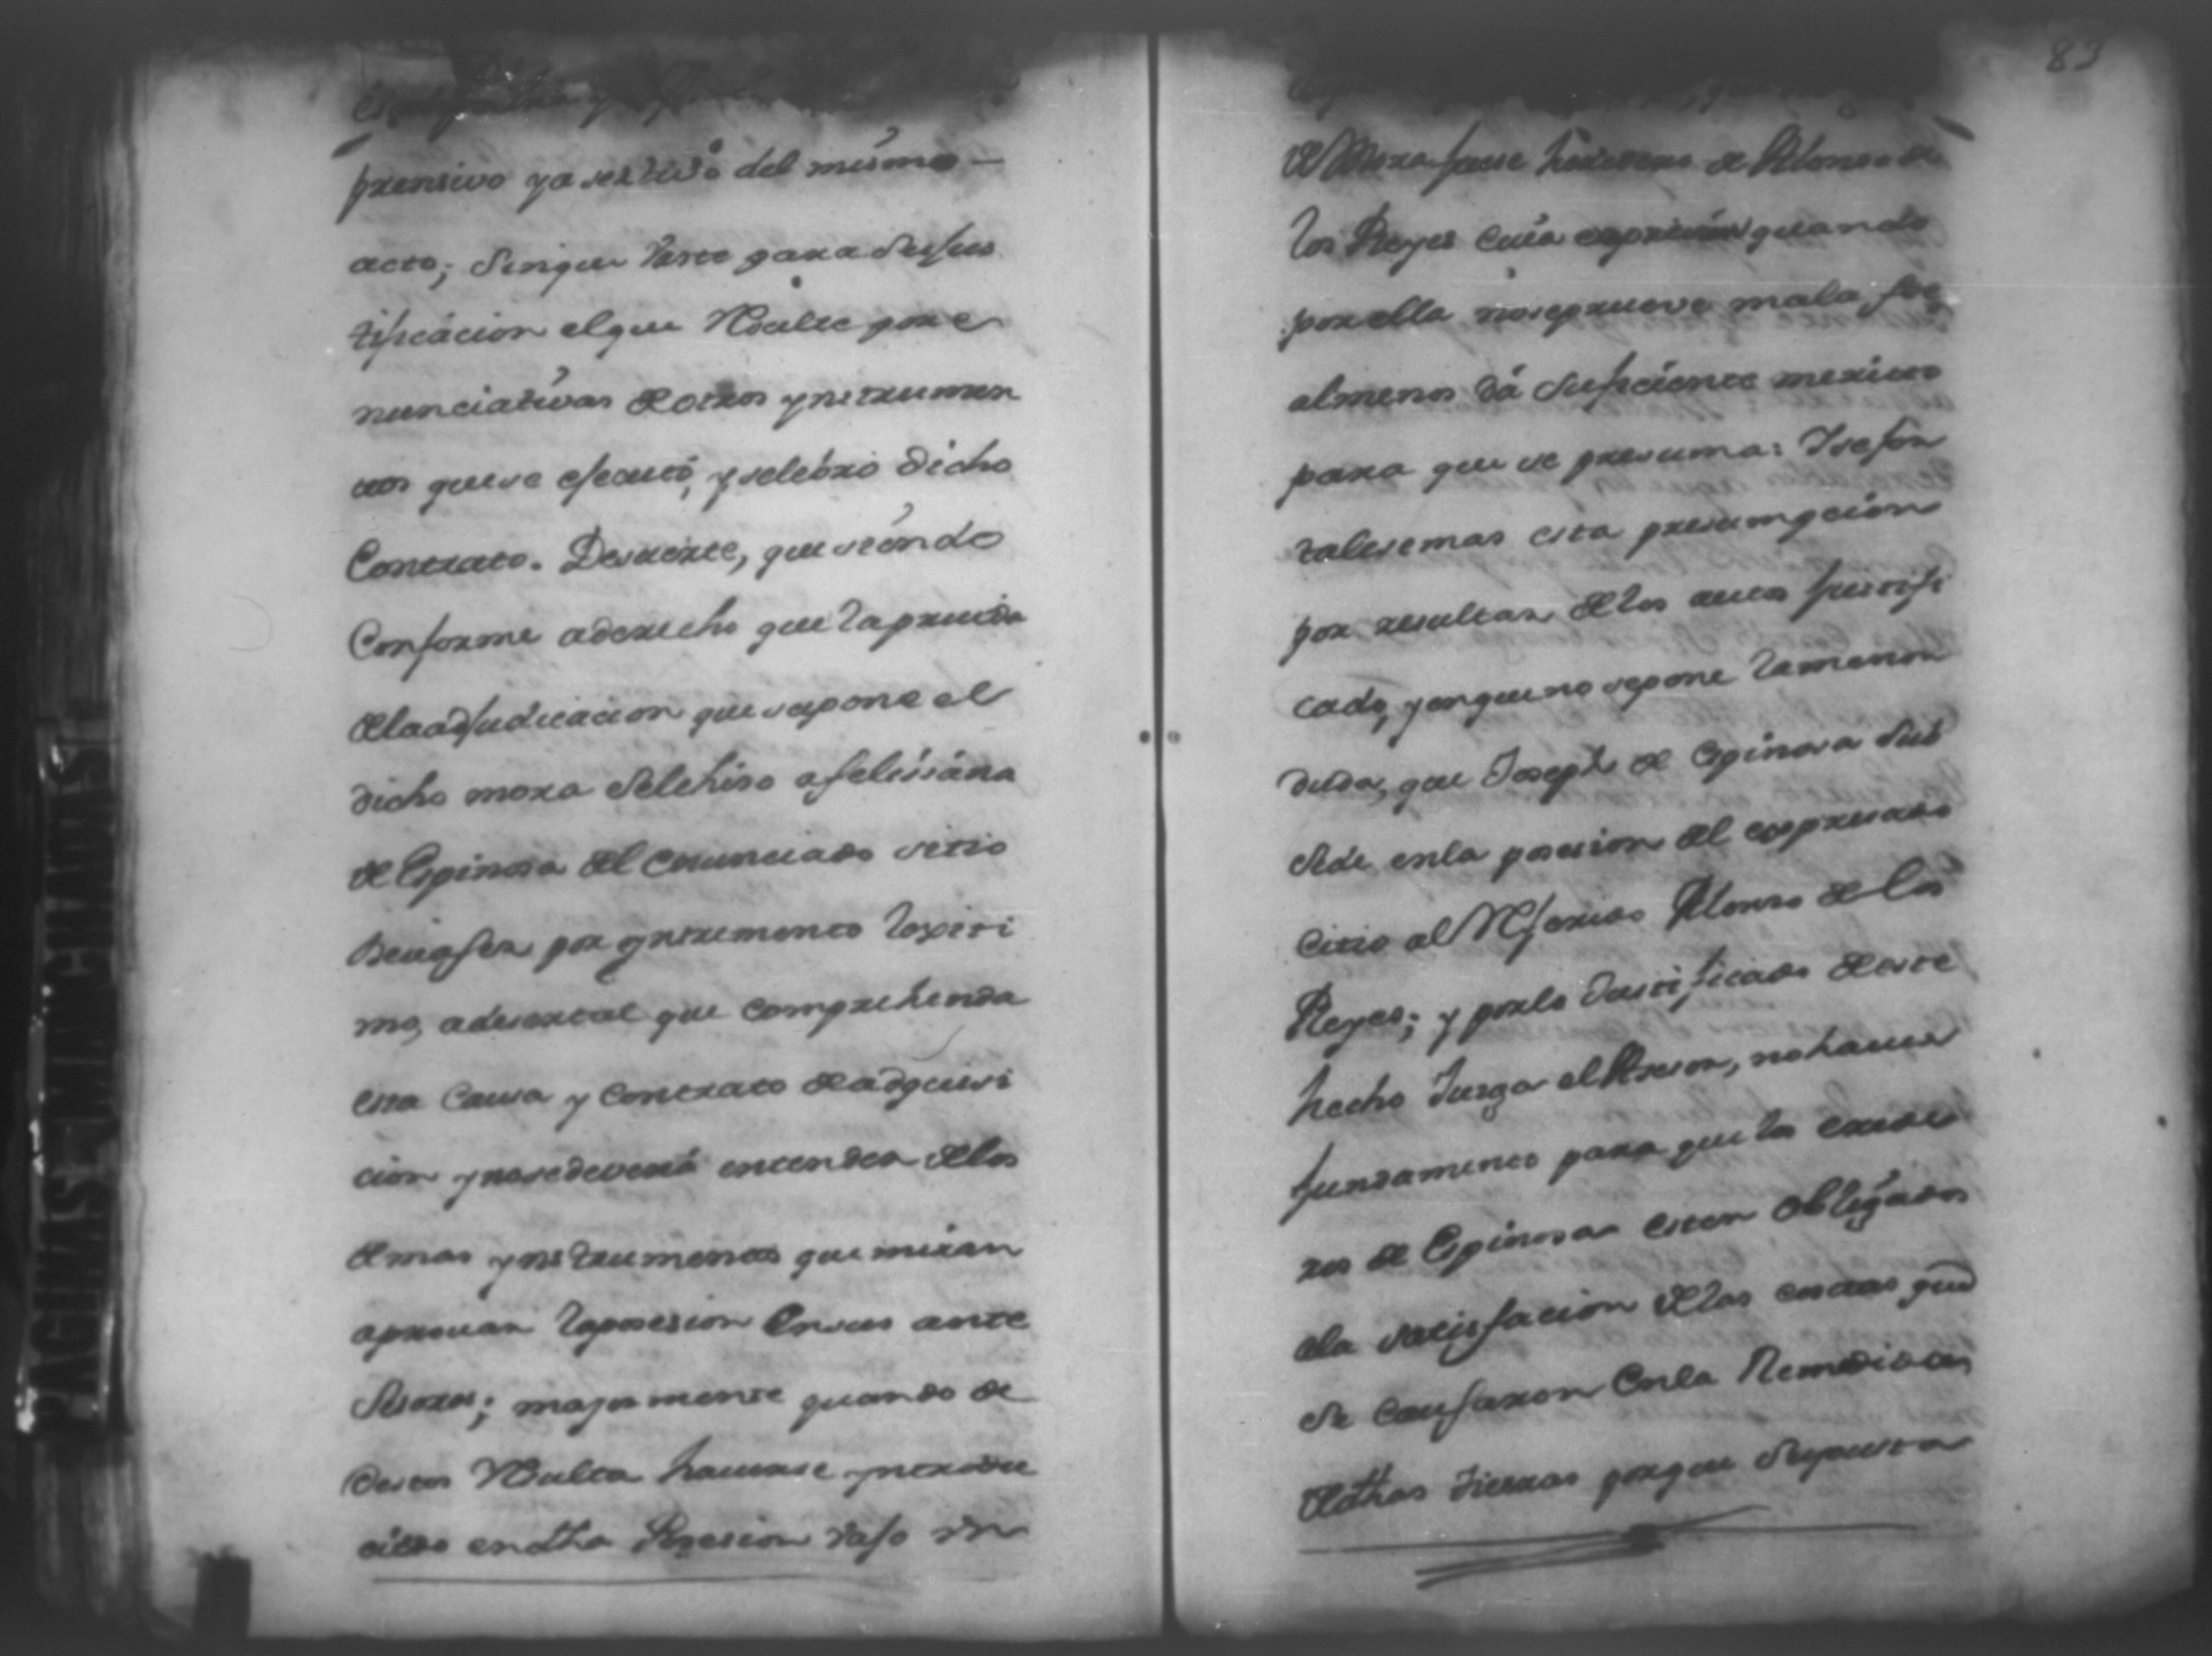 prensivo ya sertivo del mismo
acto; sin que baste para su jus
tificacion el que Resulte por e
nunciativas de otros ynstrumen
tos que se efecutó, y selebró dicho
Contrato. Desuerte, que siendo
Conforme a derecho que la prueba
de la adjudicacion que supone el
dicho mora se le hiso a felissiana
de Espinosa del enunciado sitio
por ynstrumento lexiti
mo, a de ser tal que comprehenda
esta Causa y Contrato de adquisi
cion y no se deverá entender de los
demas ynstrumentos que miran
a provar la posesion en sus ante
sesores; mayormente quando de
estos Resulta haverse yntrodu
cido en dha Posesion bajo
83
de Mora fuese heredero de Alonso de
los Reyes cuia expresion quando
por ella no se prueve mala fee
al menos dá suficiente merito
para que se presuma: Y se for
talese mas esta presumpcion
por resultar de los autos justifi
cado, y en que no se pone la menor
duda, que Joseph de Espinosa sub
sede en la posesion del expresado
Citio al Referido Alonso de los
Reyes; y por lo Justificado de este
hecho Jusga el Asesor, no haver
fundamento para que los erede
ros de Espinosa esten obligados
a la satisfacion de las costas que
se causaron en la Remedida
de dhas tierras porque supuesta
PAGINAS MANCHADAS